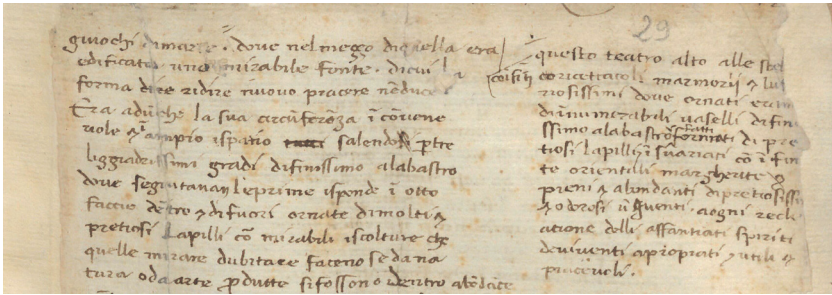 29
guiochi di marte. dove nel mezzo di quella era
edificato uno mirabile fonte. di cui la
forma di re ridire nuovo piacere n'educe
Era adūche la sua circūferēza ī cōvene
vole & ī ampio ispatio salendo p tre
liggiadrissimi gradi di finissimo alabastro
dove seguitavan le prime isponde ī otto
faccie dētro & di fuori ornate di molti &
pretiosi lapilli cō mirabili iscolture che
quelle mirare dubitare faceno se da na
tura o da arte p̄dutte si fossono dentro
questo teatro alto alle
co ricettacoli marmorij &
riosissimi dove ornati
d'innumerabili vaselli di fini
ssimo alabastro fatti di pre
tiosi lapilli ī svariati cō ī fin
te orientili margherite &
pieni & abondanti di pretiosissi
& odorosi ūguenti. a ogni recli
atione delli affantiati spiriti
de viventi apropiati & utili &
piacevoli.